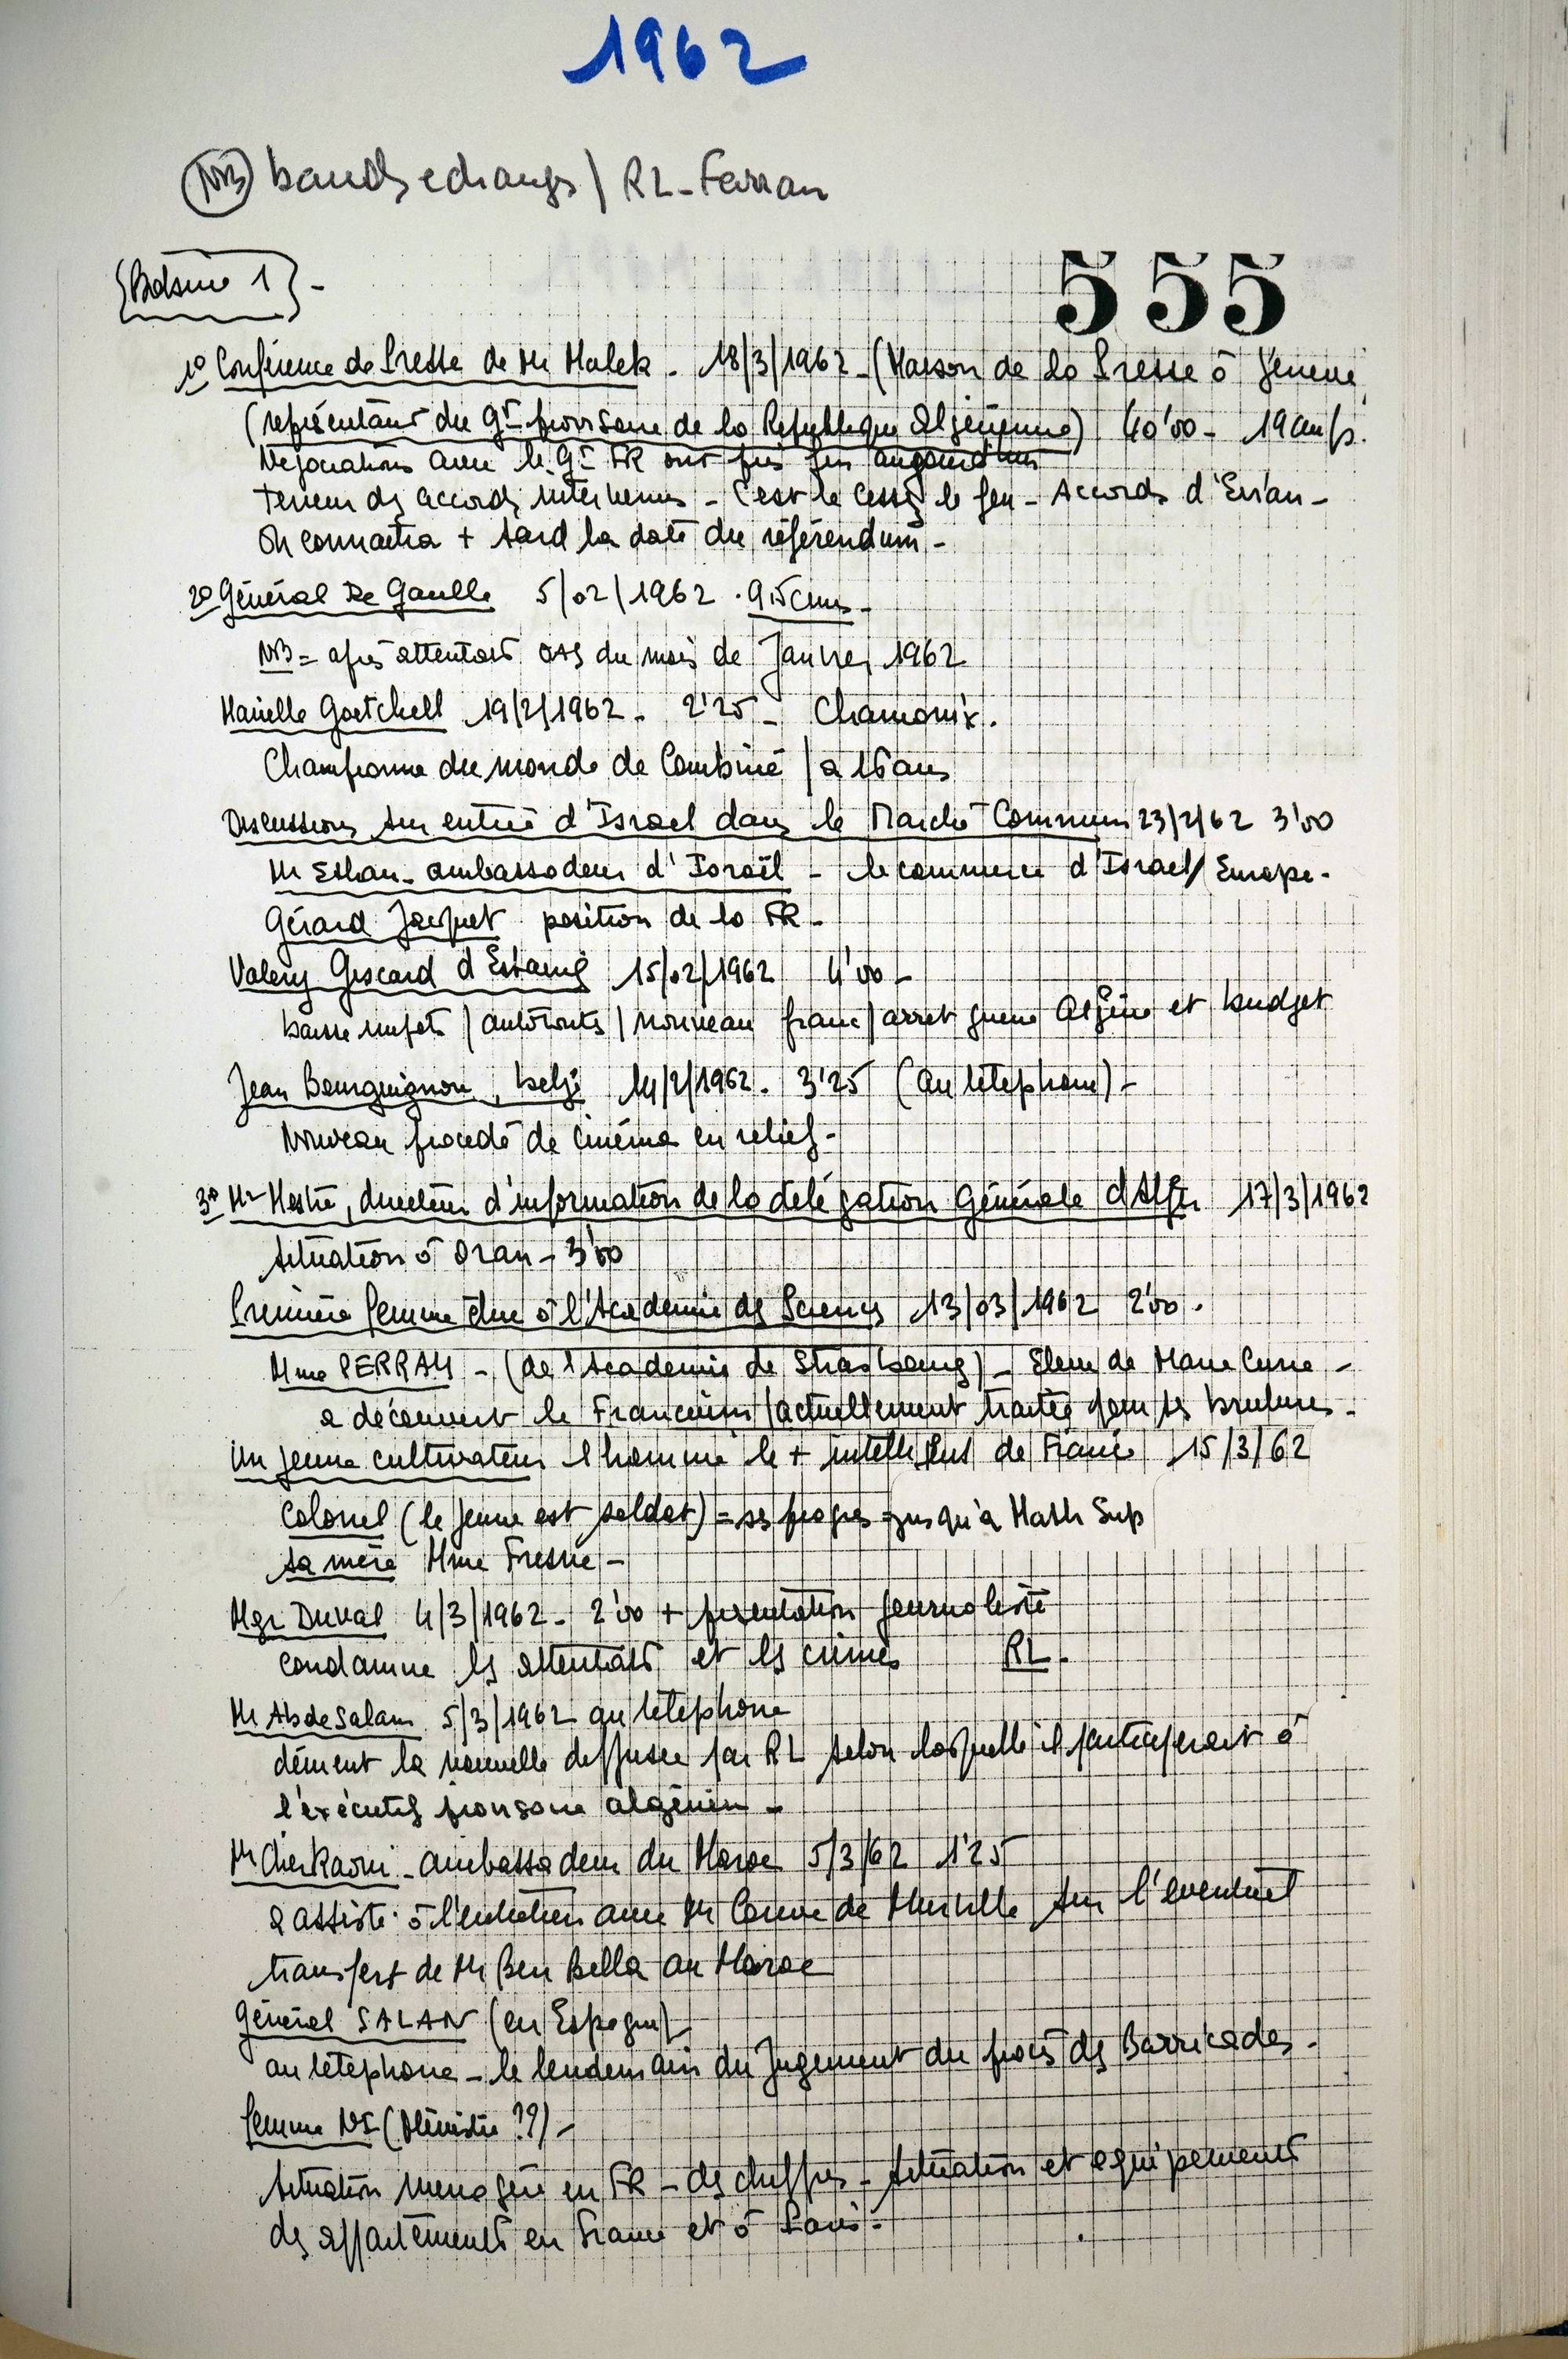 1962
NB bands echangs / RL-Ferran
Bobine 1 -
555
1º Conférence de Presse de Mr Malek - 18/3/1962 - (Maison de la Presse à Genève
(représentant du Gt provisoire de la République Algérienne) 40'00 - 19 cm/s.
Négociations avec le Gt FR ont pris fin aujourd'hui
teneur ds accords, - C'est le cessez le feu - Accords d'Evian -
On connaitra + tard la date du référendum -
2º Général De Gaulle 5/02/1962 . 9,5 cms -
NB = après attentats OAS du mois de Janvier 1962
Marielle Goetchell 19/2/1962 - 2'25 - Chamonix.
Championne du monde de Combiné / a 16 ans
Discussions sur entrée d'Israel dans le Marché Commun 23/2/62 3'00
Mr Ethan - ambassadeur d'Israël - le commerce d'Israel / Europe -
Gérard Jacquet position de la FR -
Valery Giscard d'Estaing 15/02/1962 4'00 -
baisse impots / autoroutes / nouveau franc / arret guerre Algérie et budget
Jean Bourguignon, belge 14/2/1962 . 3'25 (au telephone) -
Nouveau procédé de cinéma en relief -
3º Mr Mestre, directeur d'information de la délégation Générale d'Alger 17/3/1962
situation à Oran - 3'00
Première femme élue à l'Académie ds Sciencs 13/03/1962 2'00 .
Mme PERRAY - (de l'Academie de Strasbourg) - Eleve de Marie Curie -
a découvert le Francium / actuellement traitée pour ses brulures -
Un jeune cultivateur l'homme le + intelligent de France 15/3/62
Colonel (le jeune est soldat) = ses progrès jusqu'à Math Sup
sa mère Mme Fresne -
Mgr Duval 4/3/1962 - 2'00 + présentation journaliste
condamne ls attentats et ls crimes RL.
Mr Abdesalam 5/3/1962 au telephone
dément la nouvelle diffusée par RL selon laquelle il participerait à
l'exécutif provisoire algérien -
Mr Cherkaoui - ambassadeur du Maroc 5/3/62 1'25
a assisté à l'entretien avec Mr Couve de Murville sur l'eventuel
transfert de Mr Ben Bella au Maroc
Général SALAN (en Espagne)
au telephone - le lendemain du Jugement du procès ds Barricades -
femme NI (Ministre ??) -
situation menagère en FR - ds chiffres - situation et equipements
ds appartements en France et à Paris -